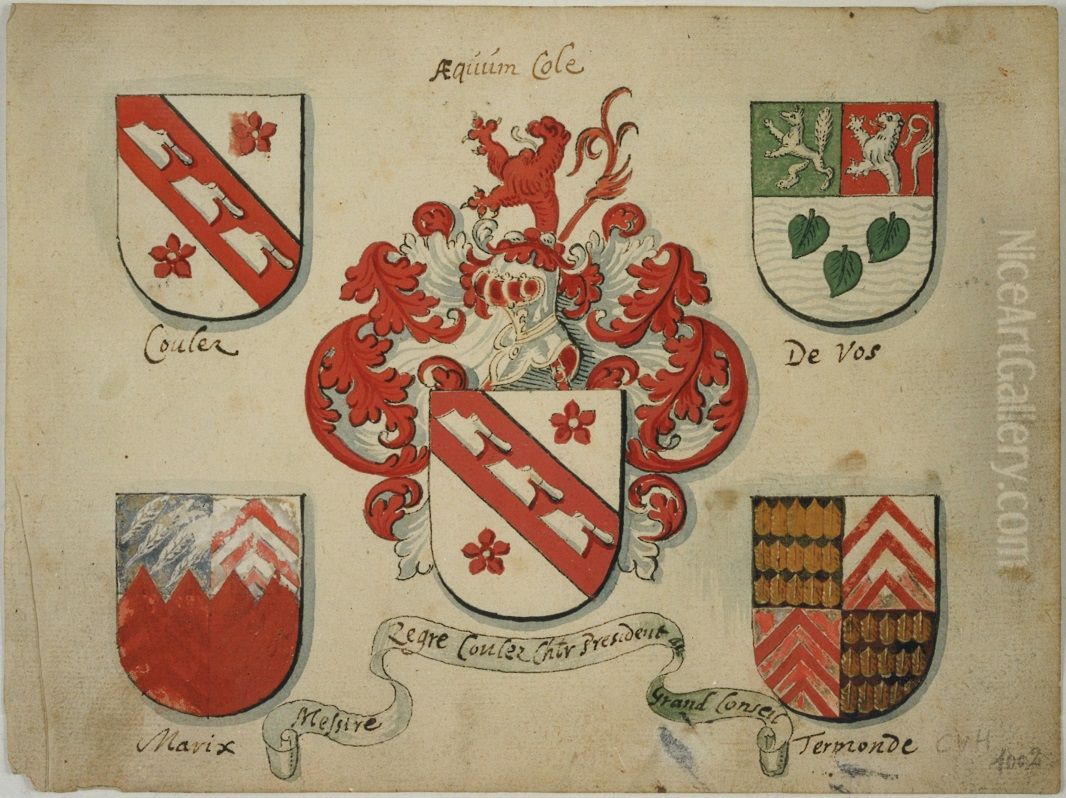 Æquum Cole
Coulez
De Vos
Messire Regre Coulez Chlr President du Grand Conseil
Marix
Termonde
CVH
4002
NiceArtGallery.com